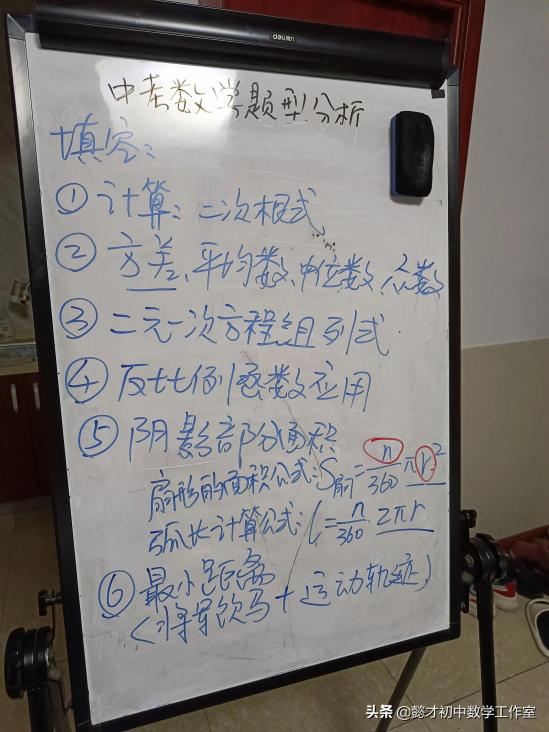 deli得力
中考数学题型分析
填空:
①计算:二次根式
②方差、平均数、中位数、众数
③二元一次方程组列式.
④反比例函数应用
⑤阴影部分面积
扇形的面积公式:S扇=n/360 πr²
弧长计算公式:l=n/360·2πr
⑥最小距离
(将军饮马+运动轨迹)
头条 @懿才初中数学工作室